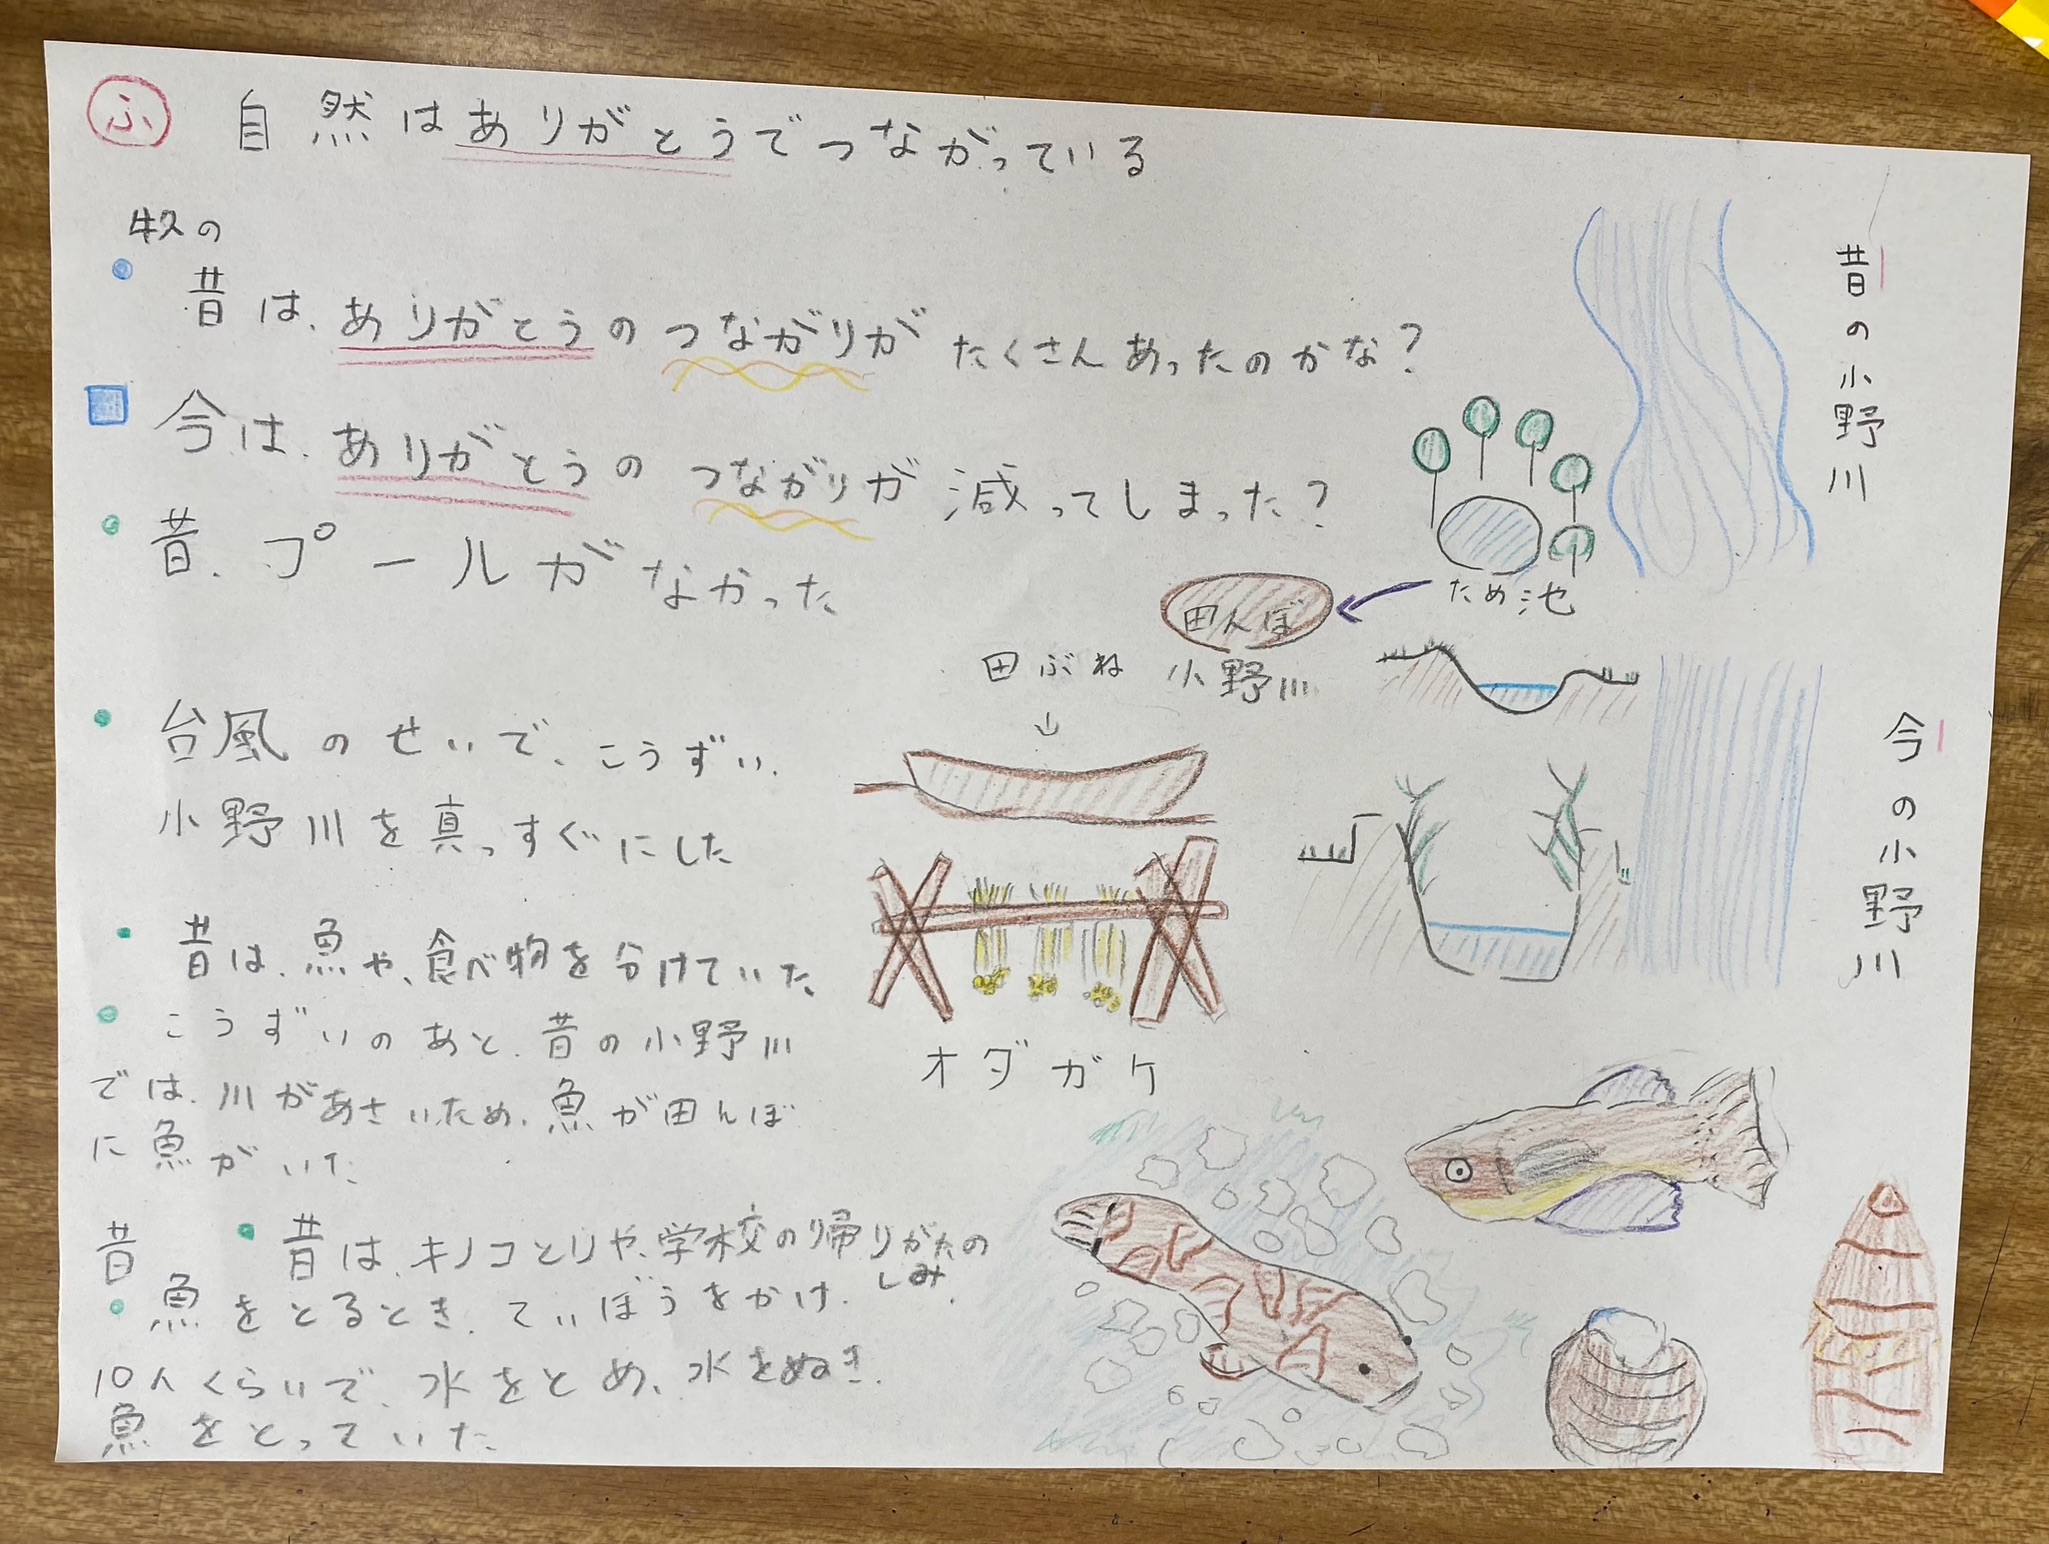 ふ 自然はありがとうでつながっている
昔は、ありがとうのつながりがたくさんあったのかな?
今は、ありがとうのつながりが減ってしまった?
昔、プールがなかった
台風のせいで、こうずい、
小野川を真っすぐにした
昔は、魚や、食べ物を分けていた
こうずいのあと、昔の小野川
では、川があさいため、魚が田んぼ
に魚がいた
昔
昔は、キノコとりや、学校の帰りがたの
しみ、
魚をとるとき、ていぼうをかけ、
10人くらいで、水をとめ、水をぬき、
魚をとっていた
昔の小野川
ため池
田んぼ
田ぶね
小野川
↓
オダガケ
今の小野川